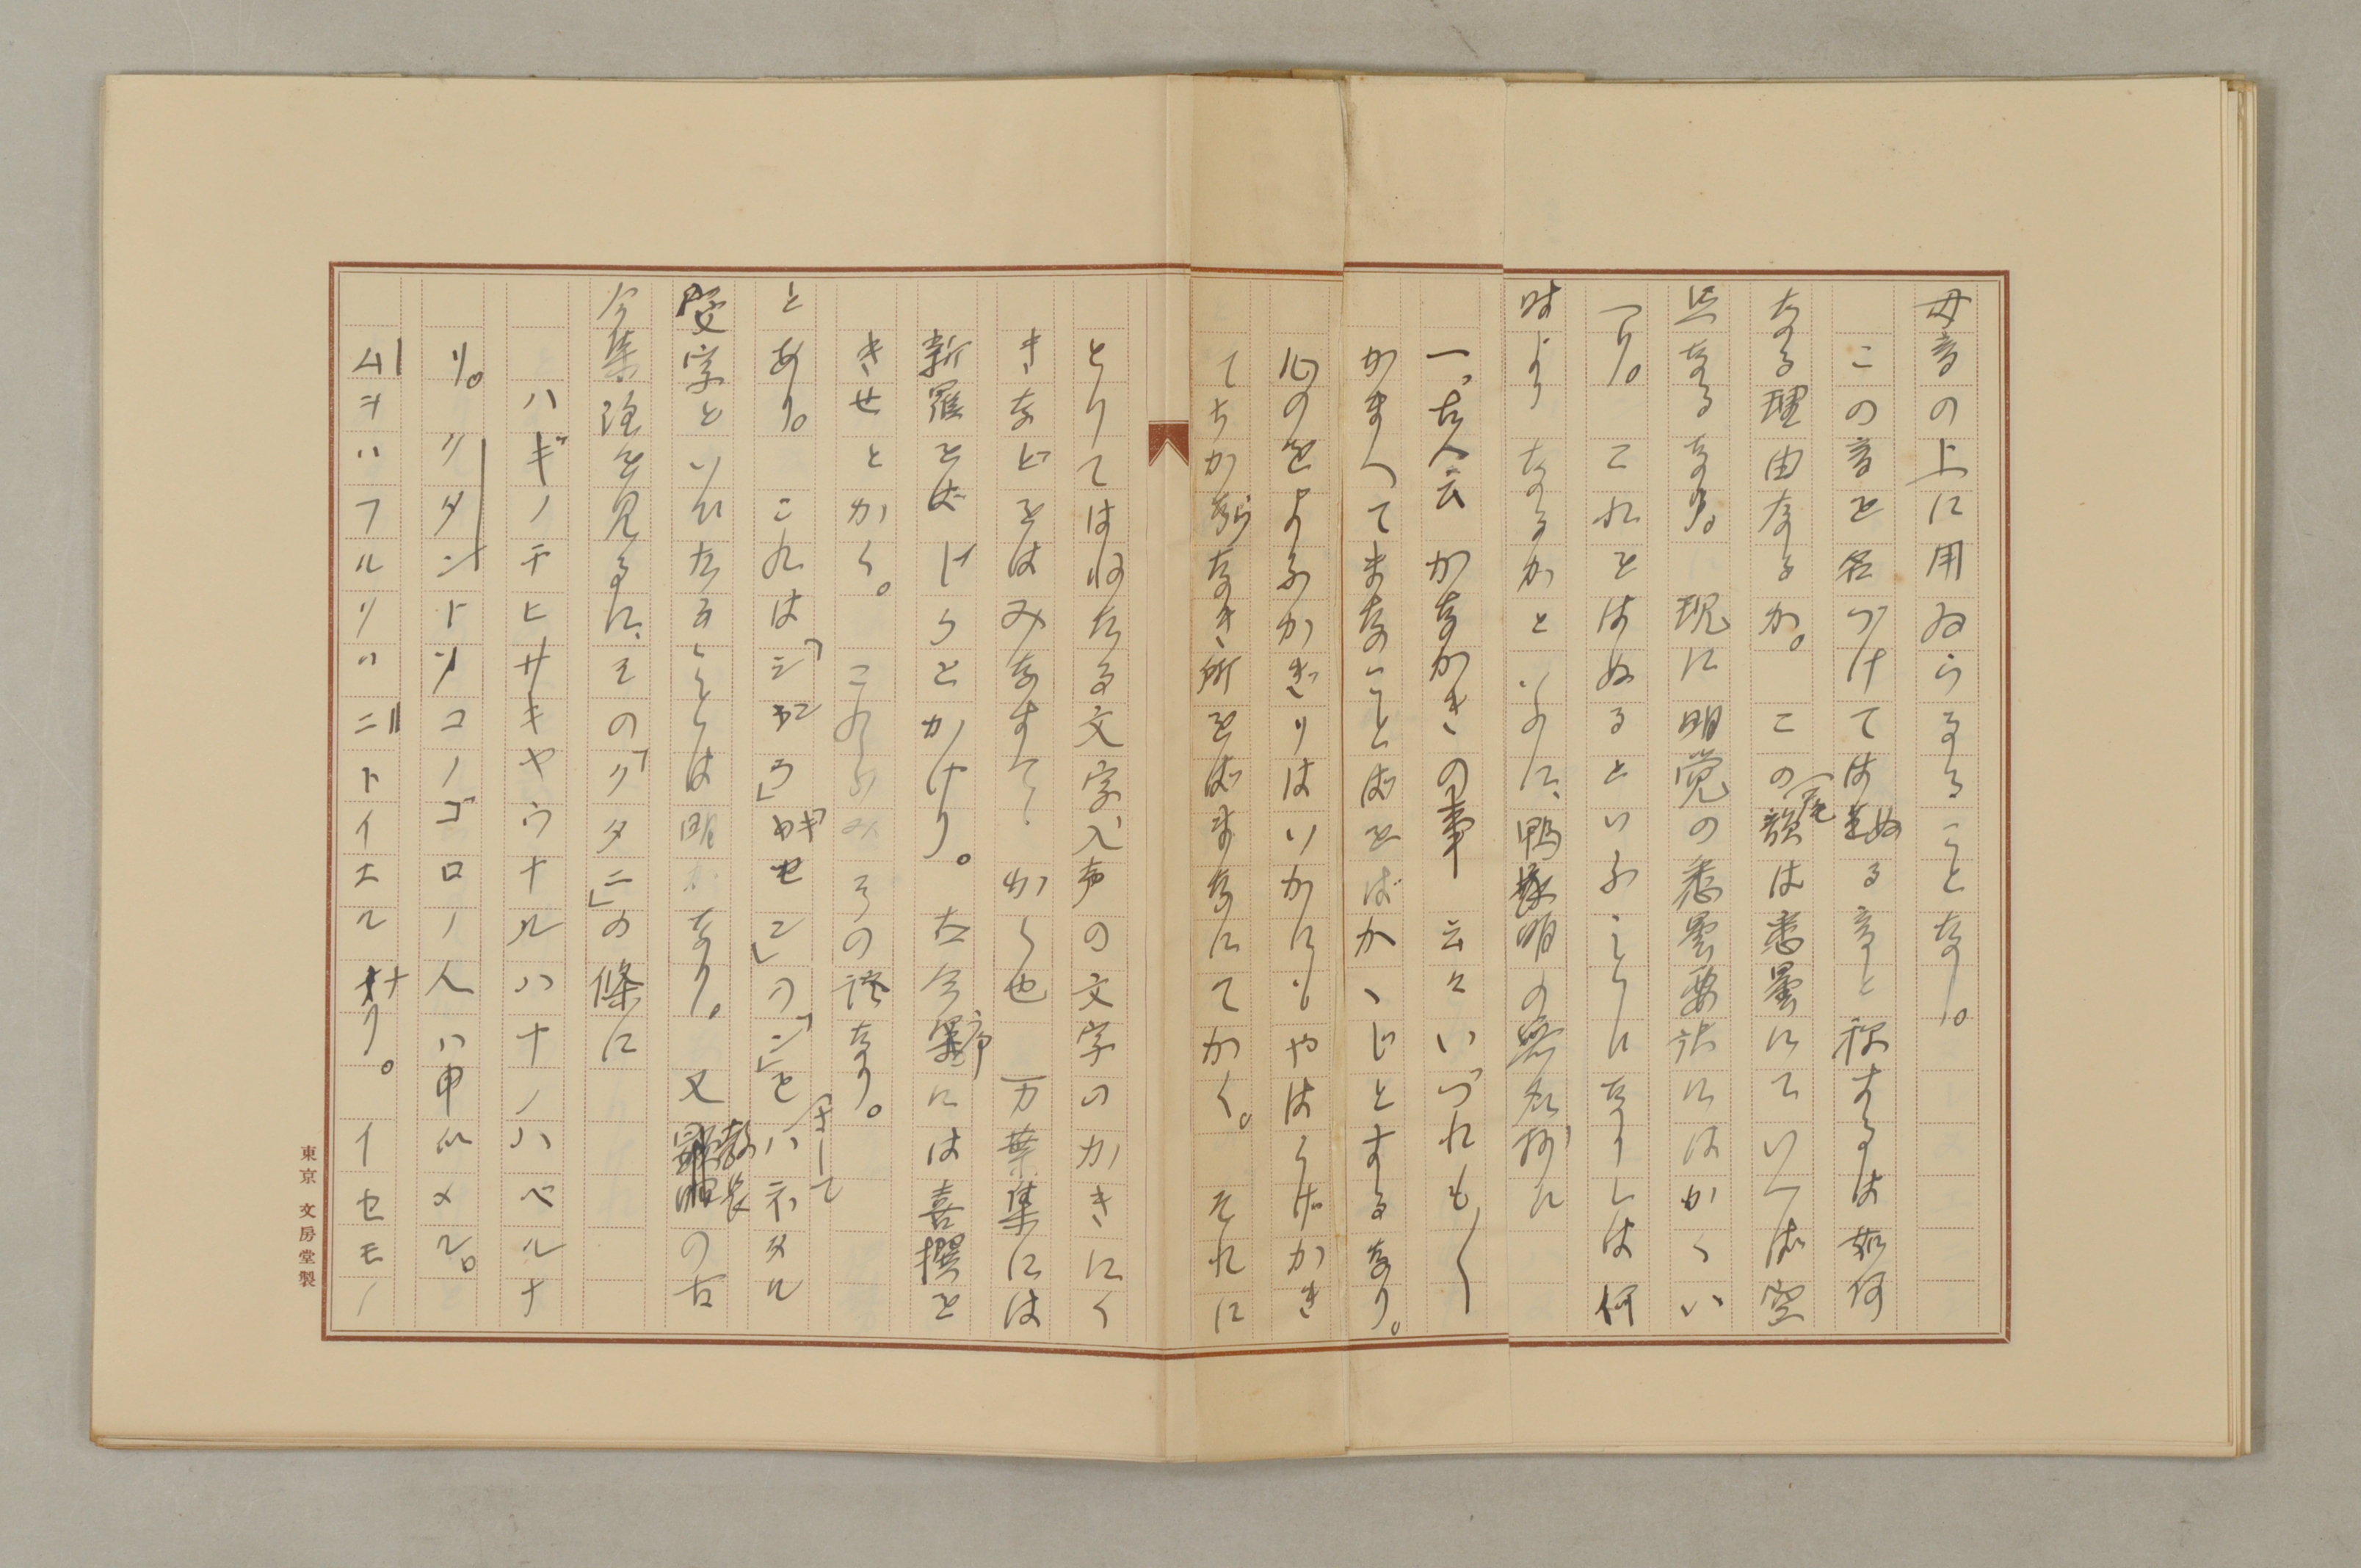 母音の上に用ゐらるゝことなし。
この音を名づけてはぬる音と称するは如何
なる理由なるか。この韻尾は悉曇にていへば空
点なるなり。現に明覚の悉曇要訣にはかくい
へり。これをはぬるといふことになりしは何
時よりなるかといふに、鴨長明の無名抄に
一、古人云かなかきの事云々いづれも〳〵
かまへてまなことばをばかゝじとするなり。
心のをよぶかぎりはいかにもやはらげかき
てちからなき所をばまなにてかく。それに
とりてはねたる文字入声の文字のかきにく
きなどをばみなすてゝかく也 万葉集には
新羅をばしらとかけり。古今序には喜撰を
きせとかく。これらみなその証なり。
とあり。これは「シンラ」「キセン」の「ン」をさしてハネタル
文字といひたることは明かなり。又教長の古
今集註を見るに、その「クタニ」の條に
ハギノチヒサキヤウナルハナノハベルナ
リ。リタントゾコノゴロノ人ハ申シメル。
ムヲハフルクハニトイヘルナリ。イセモノ
東京 文房堂製